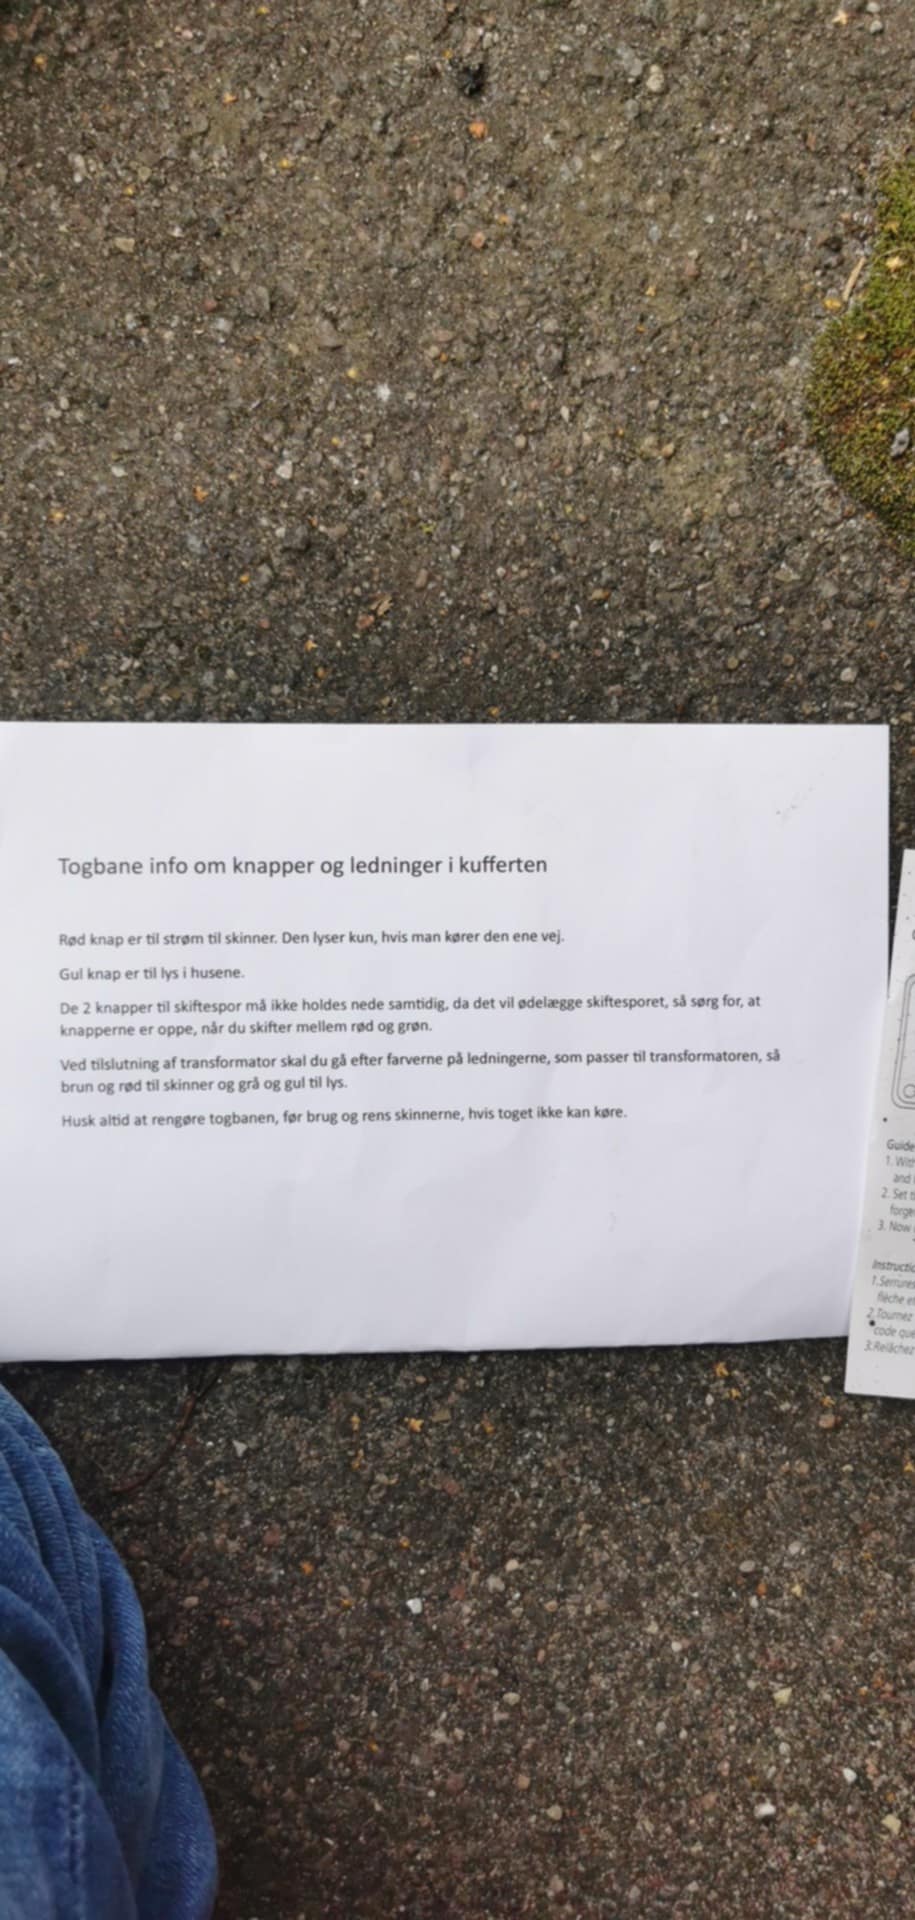 Togbane info om knapper og ledninger i kufferten
Rød knap er til strøm til skinner. Den lyser kun, hvis man kører den ene vej.
Gul knap er til lys i husene.
De 2 knapper til skiftespor må ikke holdes nede samtidig, da det vil ødelægge skiftesporet, så sørg for, at
knapperne er oppe, når du skifter mellem rød og grøn.
Ved tilslutning af transformator skal du gå efter farverne på ledningerne, som passer til transformatoren, så
brun og rød til skinner og grå og gul til lys.
Husk altid at rengøre togbanen, før brug og rens skinnerne, hvis toget ikke kan køre.
Guide
1. With
and
2. Set
forge
3. Now
Instructio
1.Serrures
flèche et
2.Tournez
code que
3.Relâchez